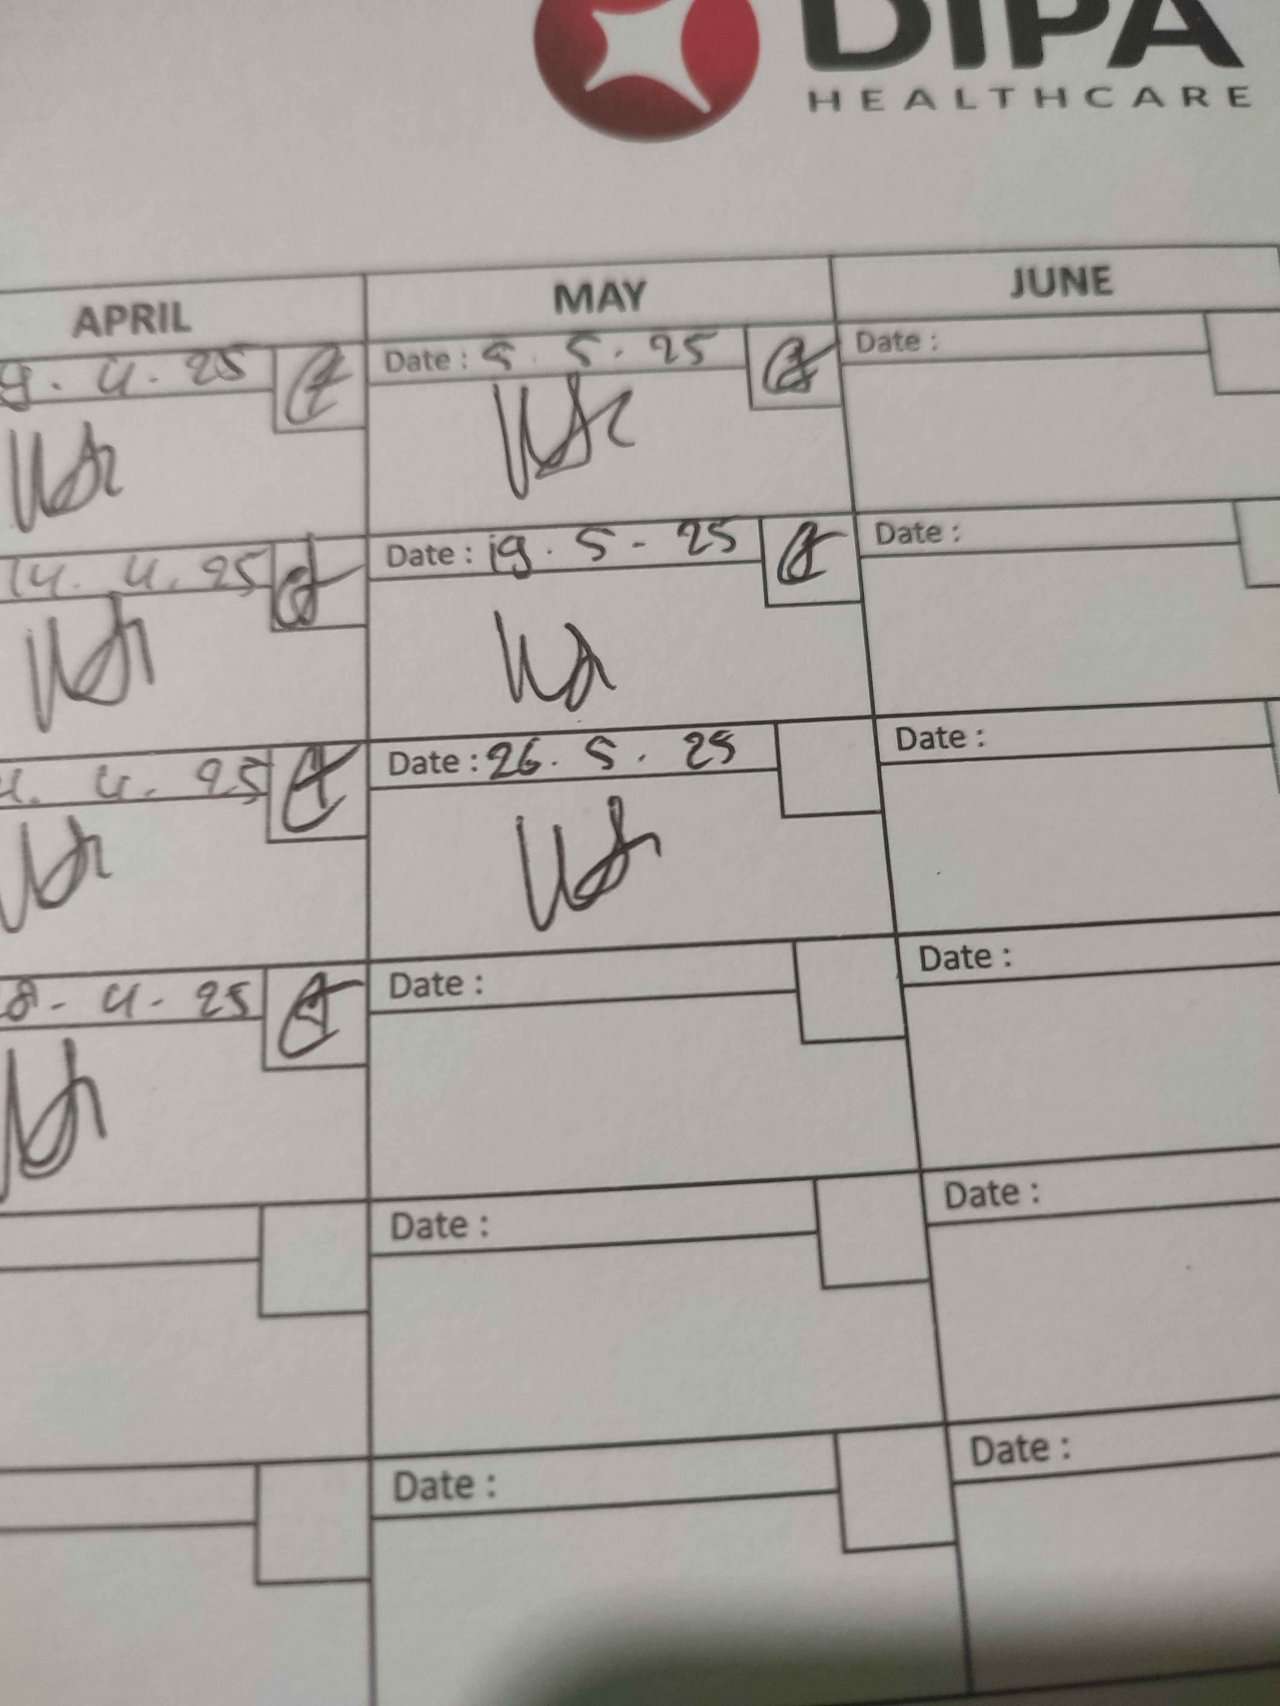 DIPA
HEALTHCARE
APRIL MAY JUNE
9. 4. 25 Date : 5. 5. 25 Date :
14. 4. 25 Date : 19. 5 - 25 Date :
4. 25 Date : 26. 5. 25 Date :
8 - 4 - 25 Date : Date :
Date : Date :
Date : Date :